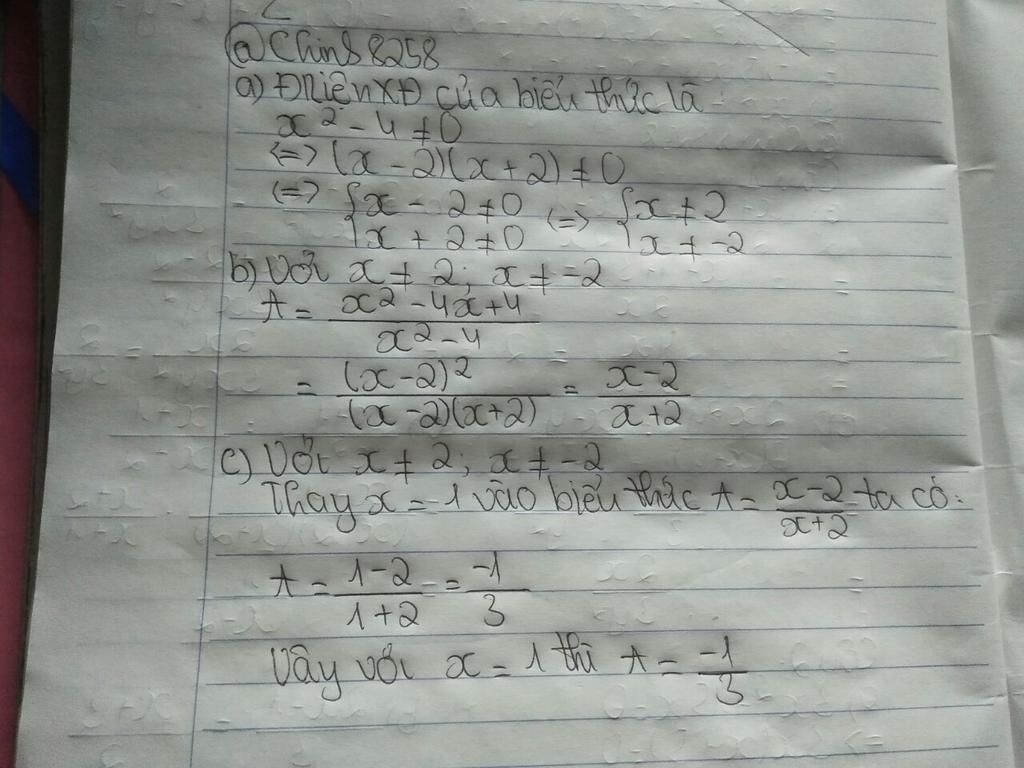 @Chins8258
a) ĐKiện XĐ của biểu thức là
x² - 4 ≠ 0
<=> (x - 2)(x + 2) ≠ 0
<=> { x - 2 ≠ 0 <=> { x ≠ 2
x + 2 ≠ 0 x ≠ -2
b) Với x ≠ 2; x ≠ -2
A = (x² - 4x + 4)/(x² - 4)
= (x - 2)²/((x - 2)(x + 2)) = (x - 2)/(x + 2)
c) Với x ≠ 2; x ≠ -2
Thay x = -1 vào biểu thức A = (x - 2)/(x + 2) ta có:
A = (1 - 2)/(1 + 2) = -1/3
Vậy với x = 1 thì A = -1/3